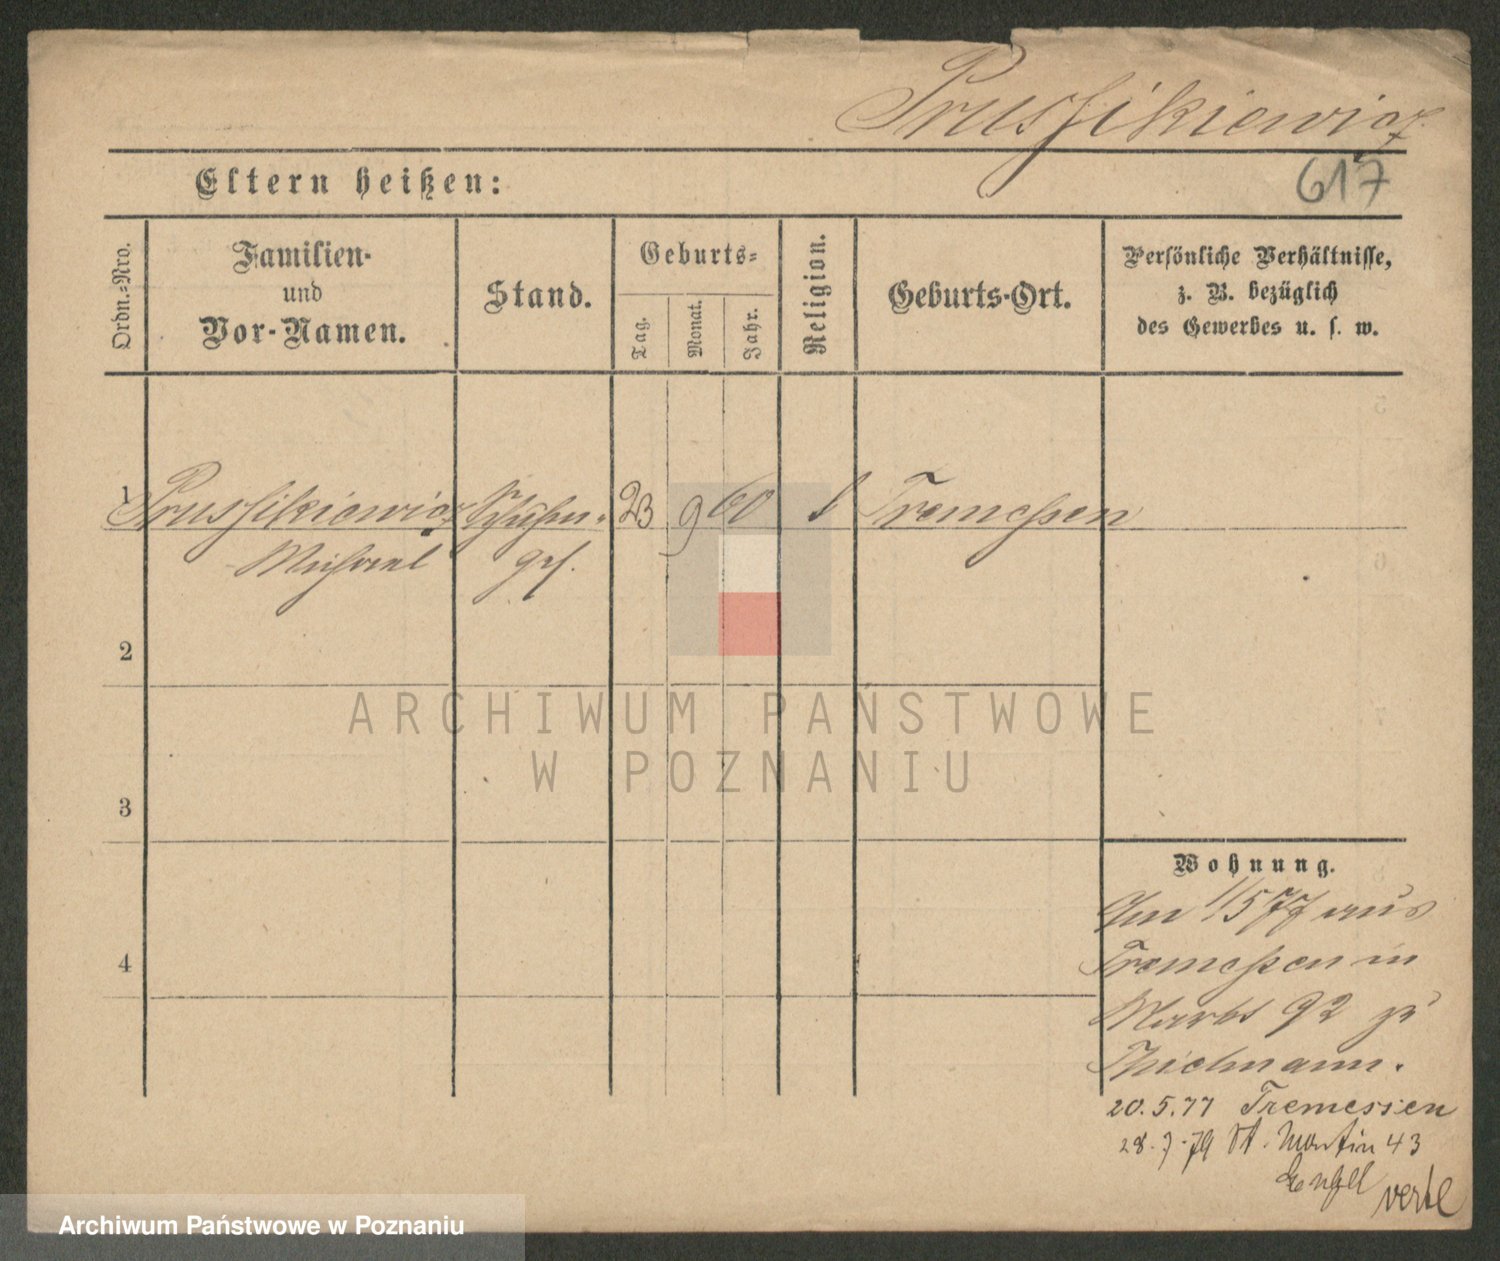 Prussikiewicz
617
Eltern heißen:
Ordn.-Nro.
Familien-
und
Vor-Namen.
Stand.
Geburts-
Tag.
Monat.
Jahr.
Religion.
Geburts-Ort.
Persönliche Verhältnisse,
z. B. bezüglich
des Gewerbes u. s. w.
1 Prussikiewicz 23 9 60 Tremessen
Michael
2
ARCHIWUM PAŃSTWOWE
W POZNANIU
3
Wohnung.
Am 1/5 77 aus
4
Tremessen in
Markt 92 zu
Thielmann.
20.5.77 Tremessen
28.7.79 St. Martin 43
Archiwum Państwowe w Poznaniu